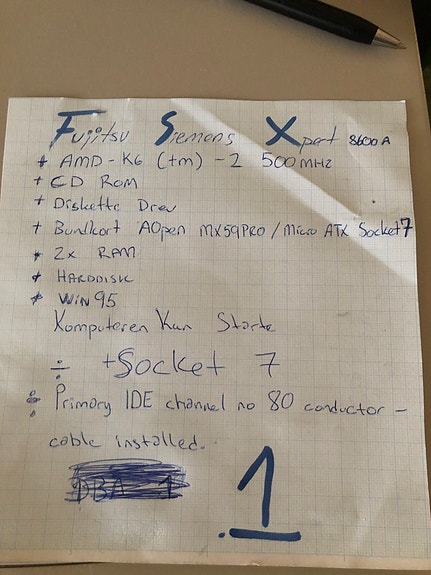 Fujitsu Siemens Xpert 8600A
+ AMD-K6 (tm) -2 500 MHZ
+ CD ROM
+ Diskette Drev
+ Bundkort AOpen MX59PRO / Micro ATX Socket 7
+ 2x RAM
+ HARDDISK
+ WIN 95
Komputeren Kan Starte
÷ +Socket 7
÷ Primary IDE channel no 80 conductor -
cable installed.
DBA 1
.1